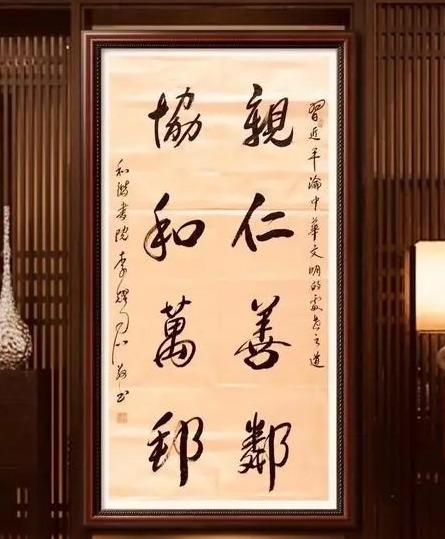 習近平論中華文明的處世之道
親仁善鄰
協和萬邦
和諧書院李